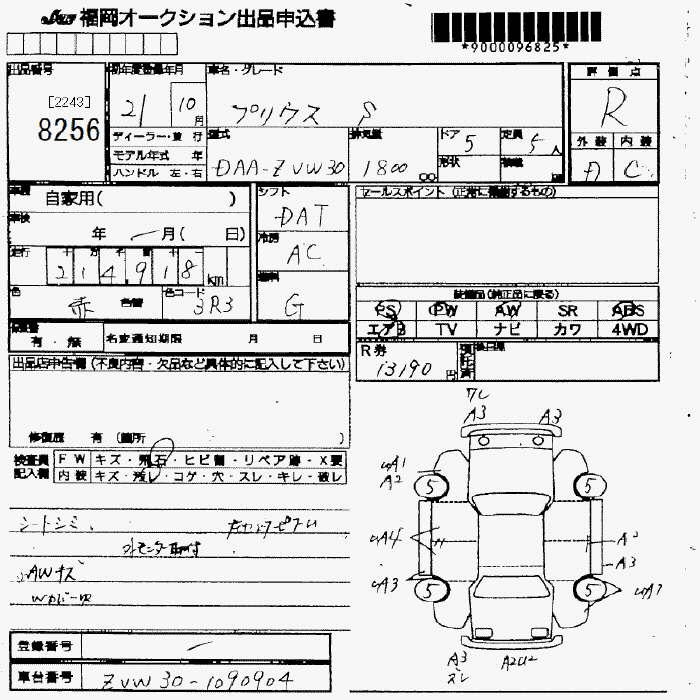 福岡オークション出品申込書
*9000096825*
出品番号 初年度登録年月 車名・グレード 評価点
[2243]
8256
21 10月 プリウス S R
ディーラー・並行 型式 排気量 ドア 5 定員 5人 外装 内装
モデル年式 年 DAA-ZVW30 1800 CC 形状 積載 A C
ハンドル 左・右
車歴 自家用( ) シフト DAT セールスポイント(正常に機能するもの)
車検 年 ー月( 日) 冷房 AC
走行 十万千百十一
214918km 燃料 G
色 赤 色替 色コード 3R3
装備品(純正品に限る)
PS PW AW SR ABS
エアB TV ナビ カワ 4WD
有・無 名変通知期限 月 日
R券 13190円
出品店申告欄(不良内容・欠品など具体的に記入して下さい)
修復歴 有(箇所 )
検査員記入欄 FW キズ・飛石・ヒビ割・リペア跡・X要
内装 キズ・残レ・コゲ・穴・スレ・キレ・破レ
シートシミ、
外モニター取付
AWキズ
ワレ
A3 A3
A1
A2 5 5
A4 A2
A3
A3 5 5
A3 A2U2
登録番号 ー
車台番号 ZVW30-1090904